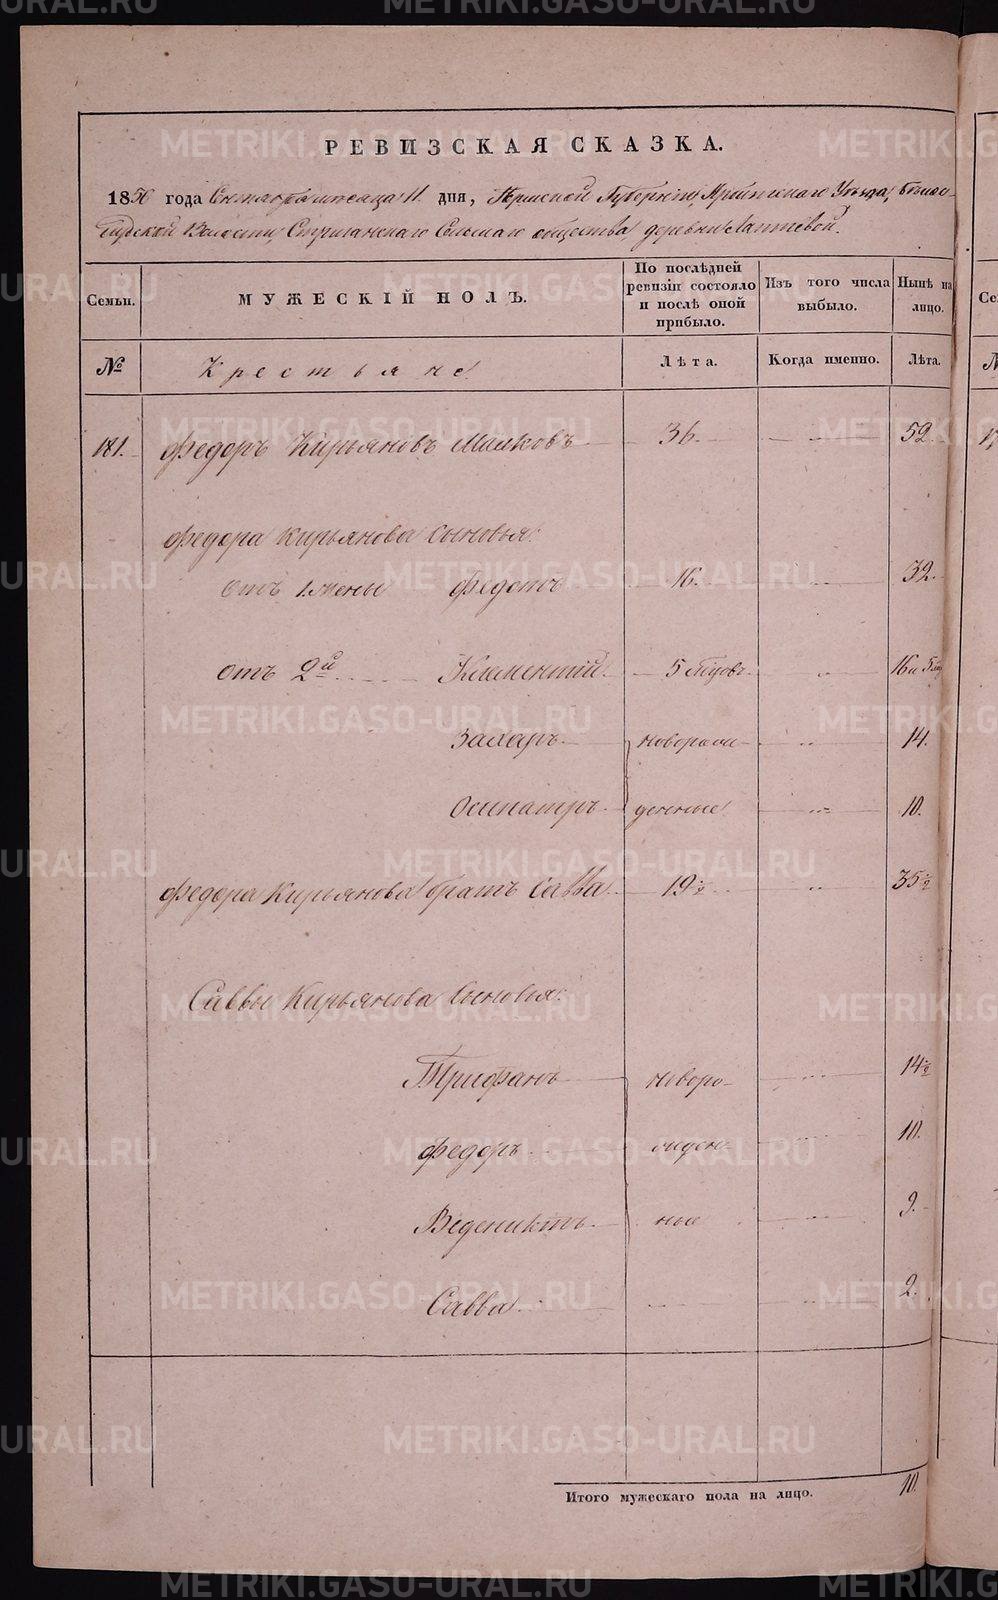 РЕВИЗСКАЯ СКАЗКА.
1856 года Октября месяца 11 дня, Пермской Губерніи, Ирбитскаго Уѣзда,
Волости, Стриганскаго Сельскаго общества деревни Лаптевой.
Семьи. МУЖЕСКІЙ ПОЛЪ. По послѣдней ревизіи состояло и послѣ оной прибыло. Изъ того числа выбыло. Нынѣ на лицо.
№ Крестьяне. Лѣта. Когда именно. Лѣта.
181. Федоръ Кирьяновъ 36. 52.
Федора Кирьянова сыновья:
отъ 1 жены Федотъ 16. 32.
отъ 2й Климентій 5 мѣсяцовъ 16 и 5
Захаръ новорож- 14.
Осипатръ денные 10.
Федора Кирьянова братъ Савва 19½ 35½
Саввы Кирьянова сыновья:
Трифанъ новоро- 14½
Федоръ жден- 10.
Веденихтъ ные 9.
Савва. 2.
Итого мужескаго пола на лицо. 10.
METRIKI.GASO-URAL.RU